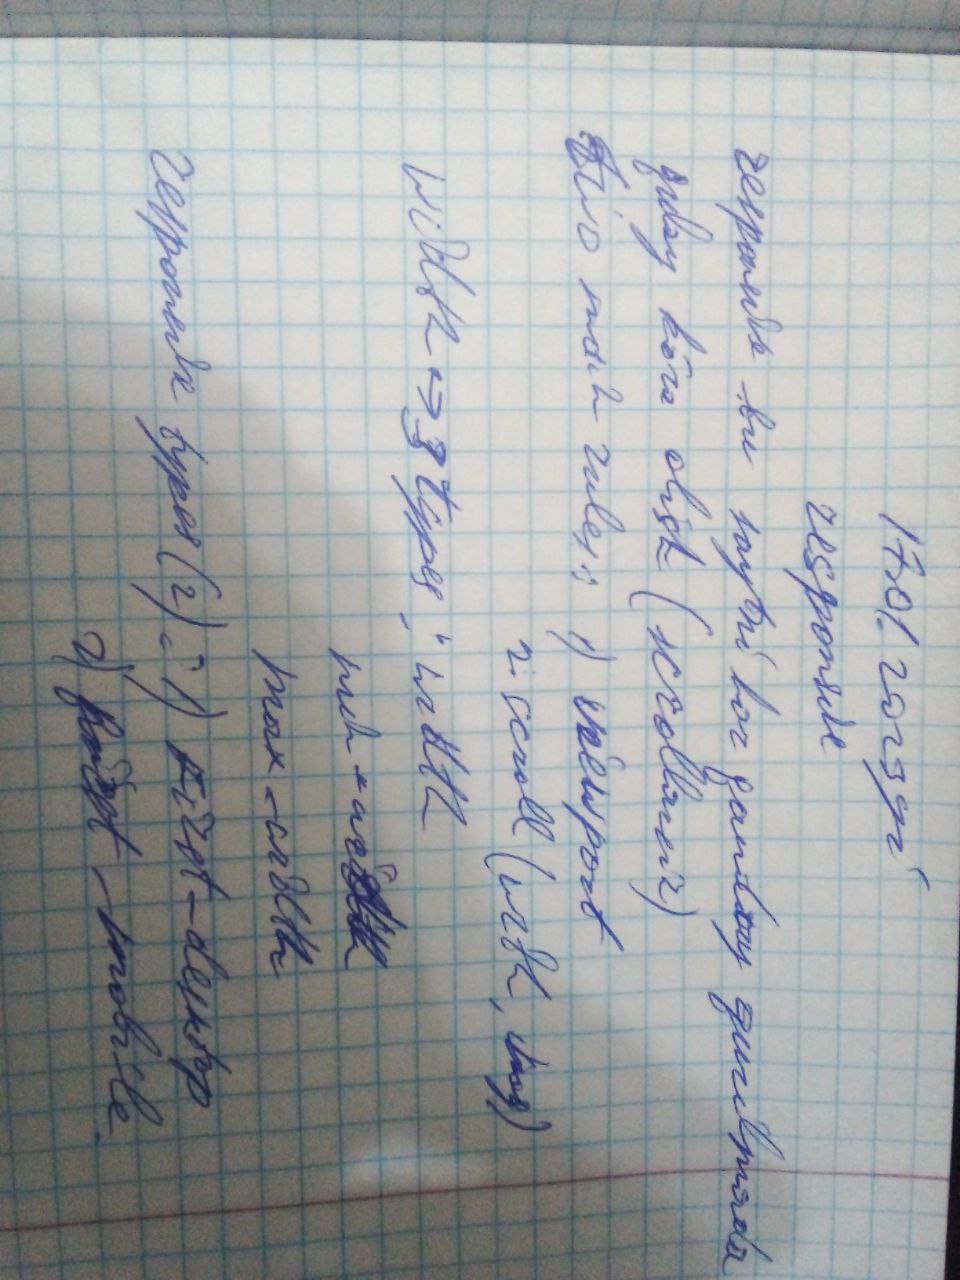 17.01.2025
responsive
responsive bu saytni har qanday qurilmada
qulay ko'ra olish (scrollarsiz)
Two main rules: 1) viewport
2. scroll (width,
Width -> 3 types; width
min-width
max-width
responsive types (2): 1) First-desktop
2) First-mobile.